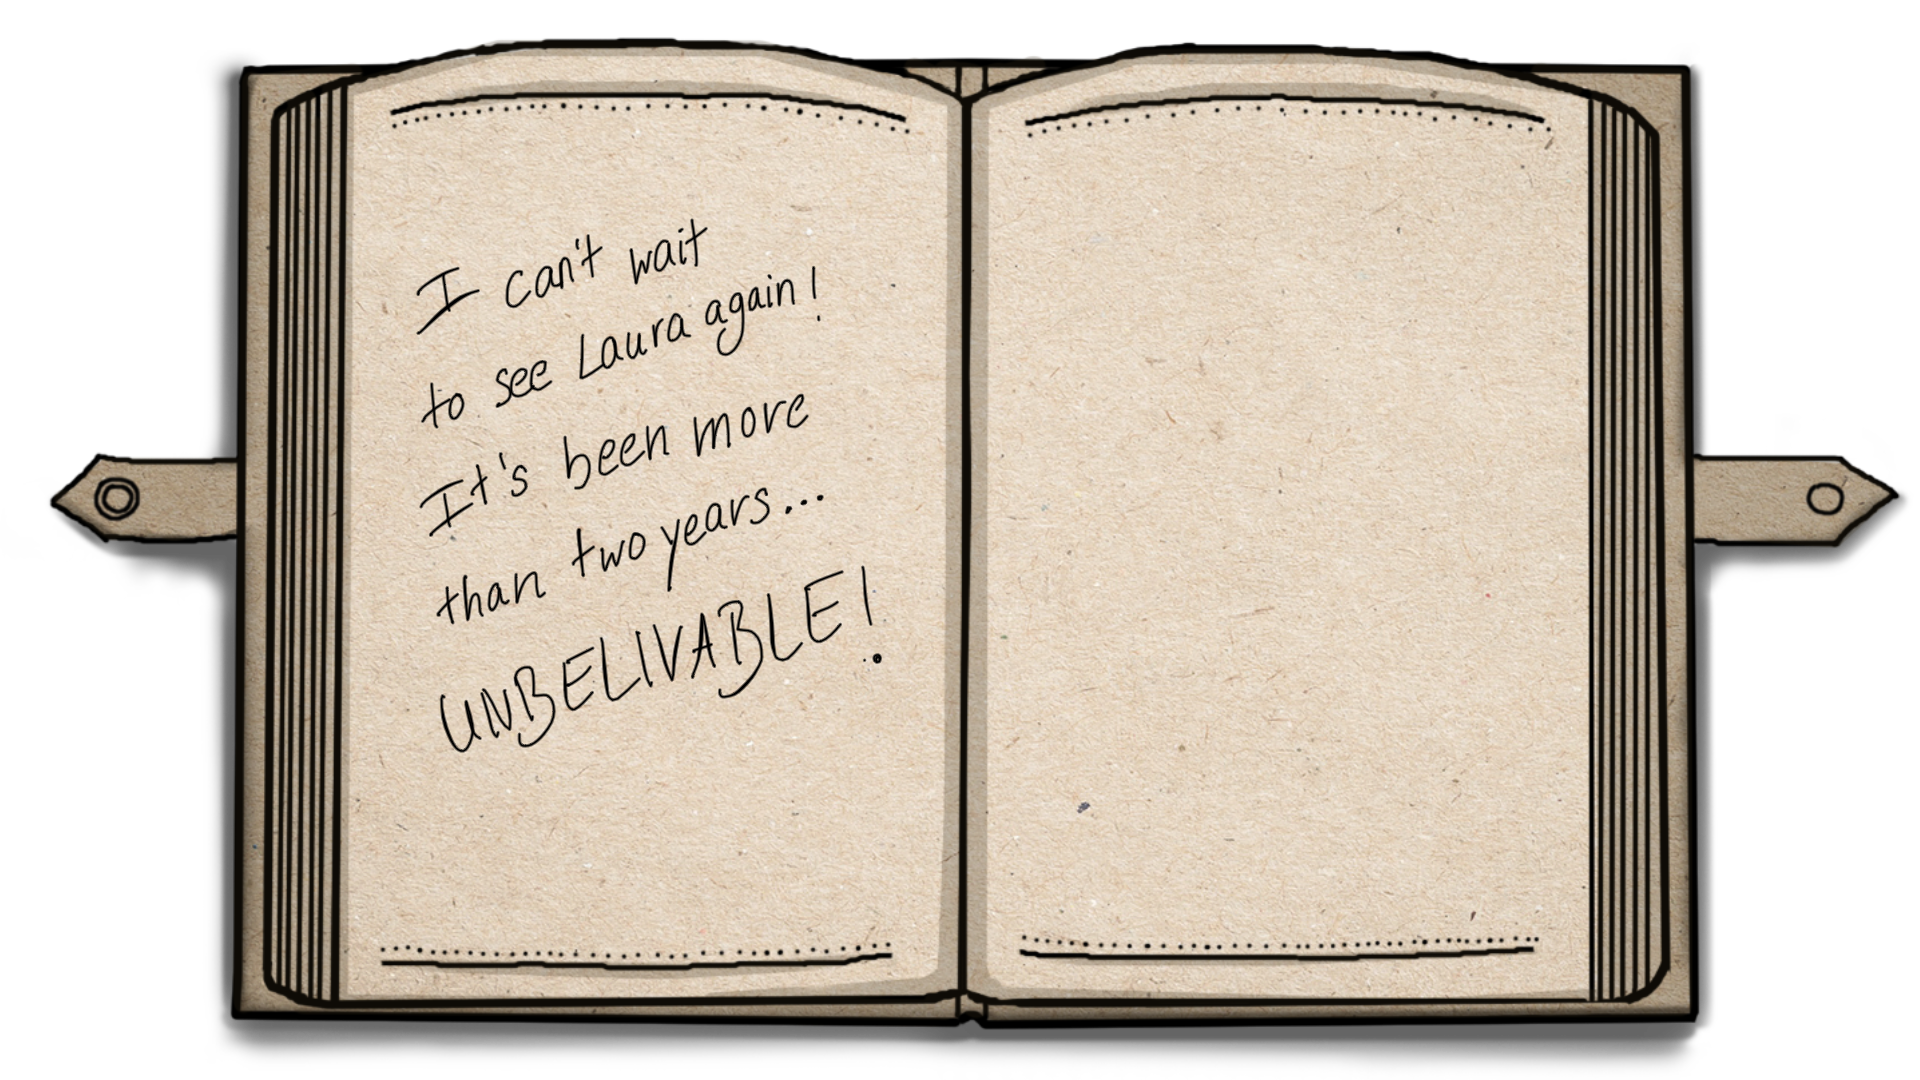 I can't wait
to see Laura again!
It's been more
than two years...
UNBELIVABLE!